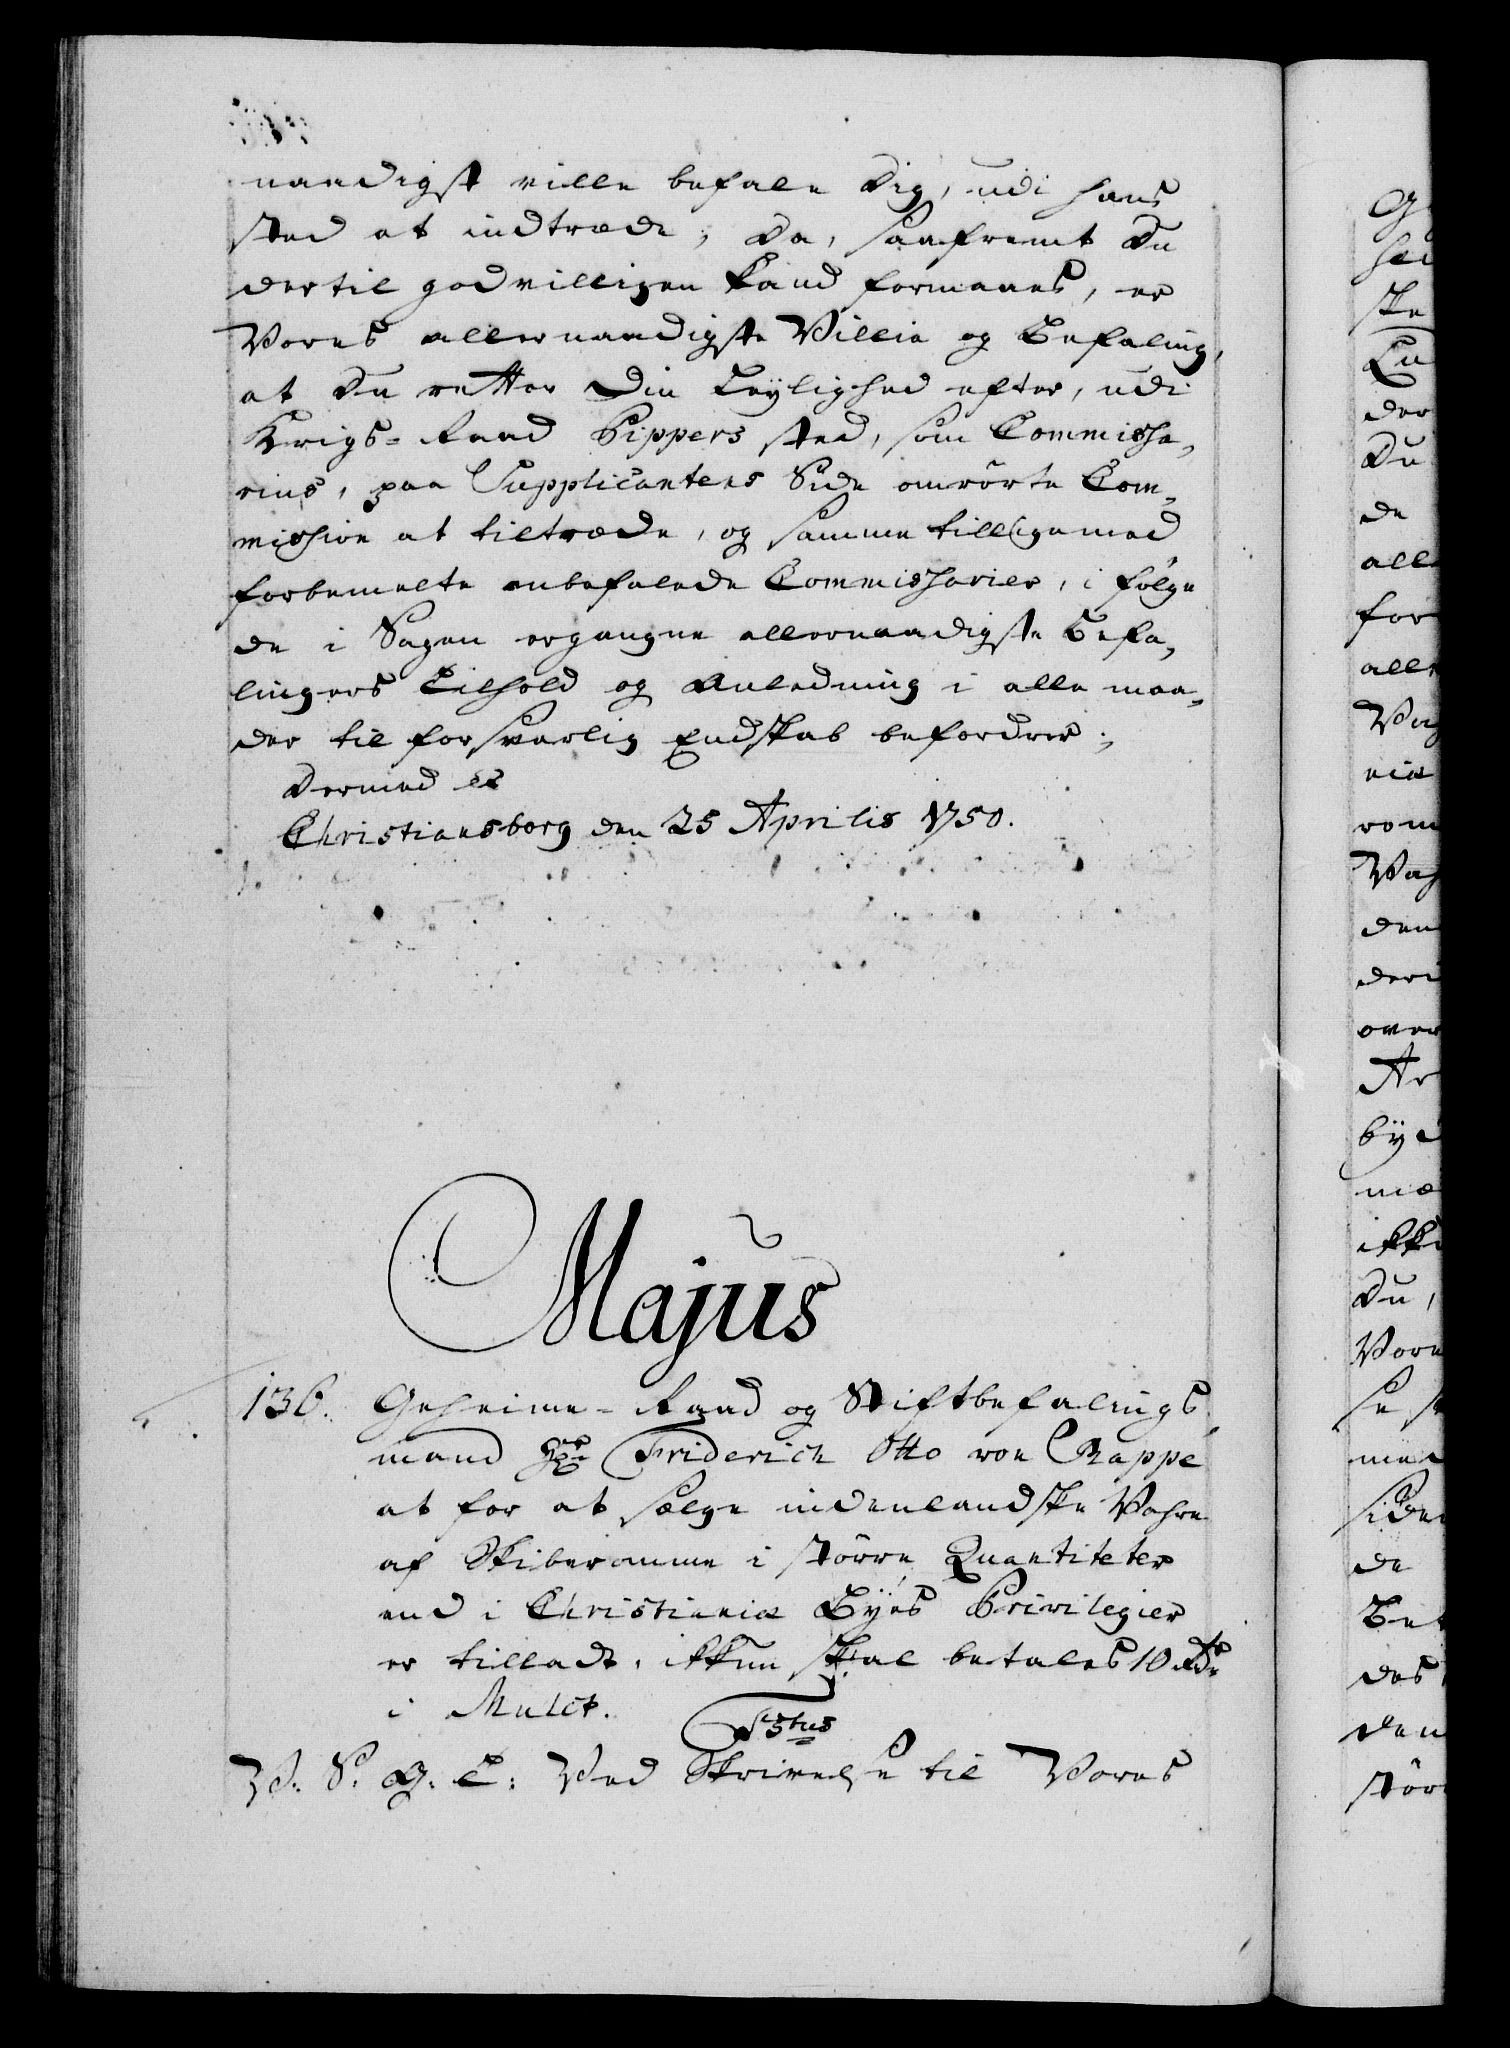 naadigst ville befale Dig, udi hans
sted at indtræde; Da, saafremt Du
dertil godvilligen kand formaaes, er
Vores allernaadigste Villie og Befaling,
at Du retter Din Leylighed efter, udi
Krigs-Raad Pippers sted, som Commissa-
rius, paa Supplicantens Side omrørte Com-
mission at tiltræde, og samme tilligemed
forbemelte anbefalede Commissarier, i følge
de i Sagen ergangne allernaadigste Befa-
lingers Tilhold og Anledning i alle maa-
der til forsvarlig Endskab befordrer;
Dermed etc
Christiansborg den 25 Aprilis 1750.
Majus
136. Geheime-Raad og Stiftbefalings-
mand Hr Friderich Otto von Rappe
at for at sælge indenlandske Vahre
af Skiberomme i større Quantiteter
end i Christiania Byes Privilegier
er tilladt, ikkun skal betales 10 Rdr
i Mulct.
F 5tus
V. S. G. T: Ved Skrivelse til Vores